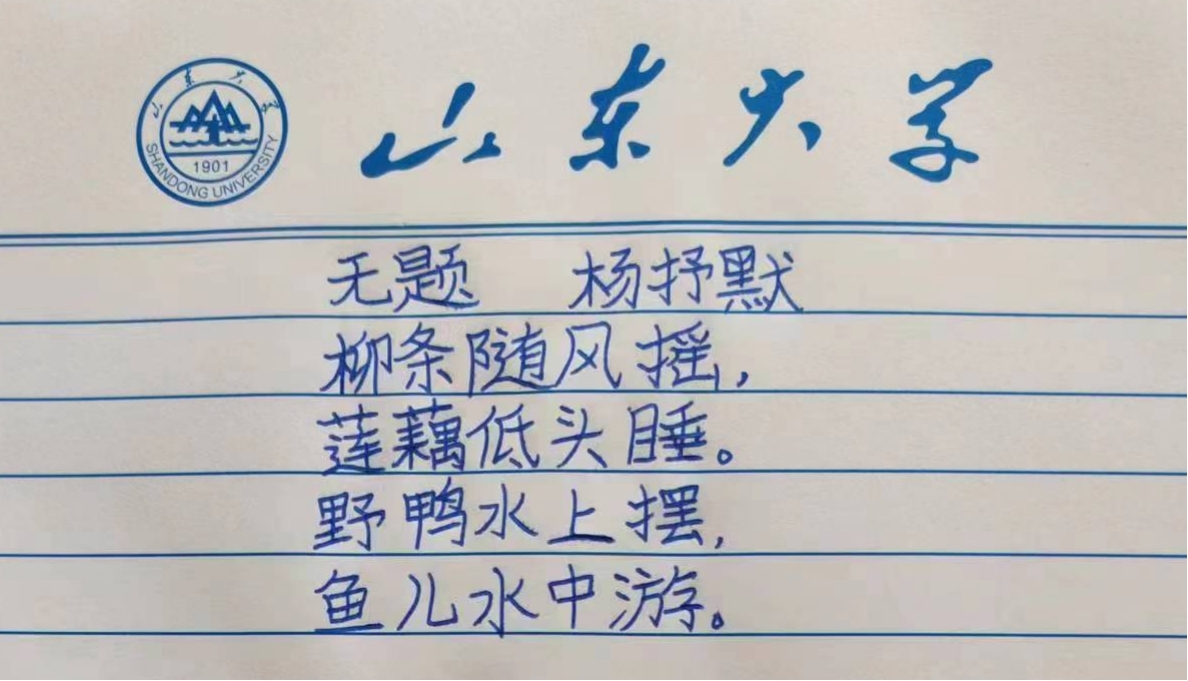 山东大学
山东大学
SHANDONG UNIVERSITY
1901
无题 杨抒默
柳条随风摇，
莲藕低头睡。
野鸭水上摆，
鱼儿水中游。